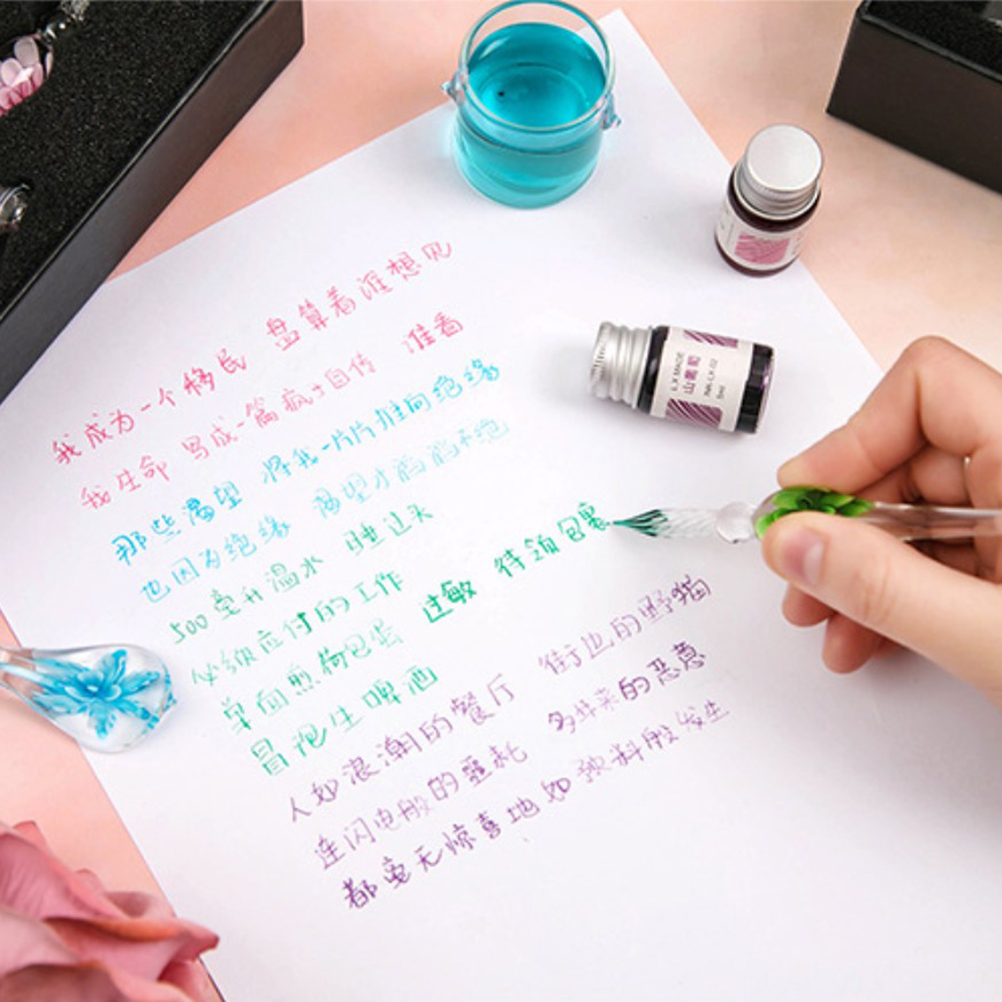 我成为一个移民 盘算着谁想见
我生命 写成一篇疯士自传 准看
那些渴望 将我一片片推向绝缘
也因为绝缘 渴望才滔滔不绝
500毫升温水 睡过头
必须应付的工作
单面煎荷包蛋 过敏 待领包裹
冒泡生啤酒
人如浪潮的餐厅 街边的野猫
连闪电般的噩耗 多年来的恶意
都毫无惊喜地如预料般发生
LX MADE
山葡萄
INK-LX-02
5ml